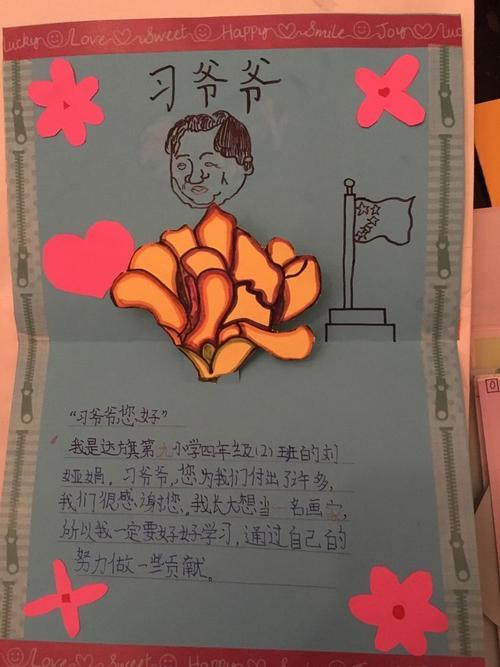 Lucky Love Sweet Happy Smile Joy Luc
习爷爷
“习爷爷您好”
我是达旗第九小学四年级(2)班的刘
娅娟。习爷爷,您为我们付出了许多,
我们很感谢您。我长大想当一名画家,
所以我一定要好好学习,通过自己的
努力做一些贡献。
Love Sweet Happy Smile Joy